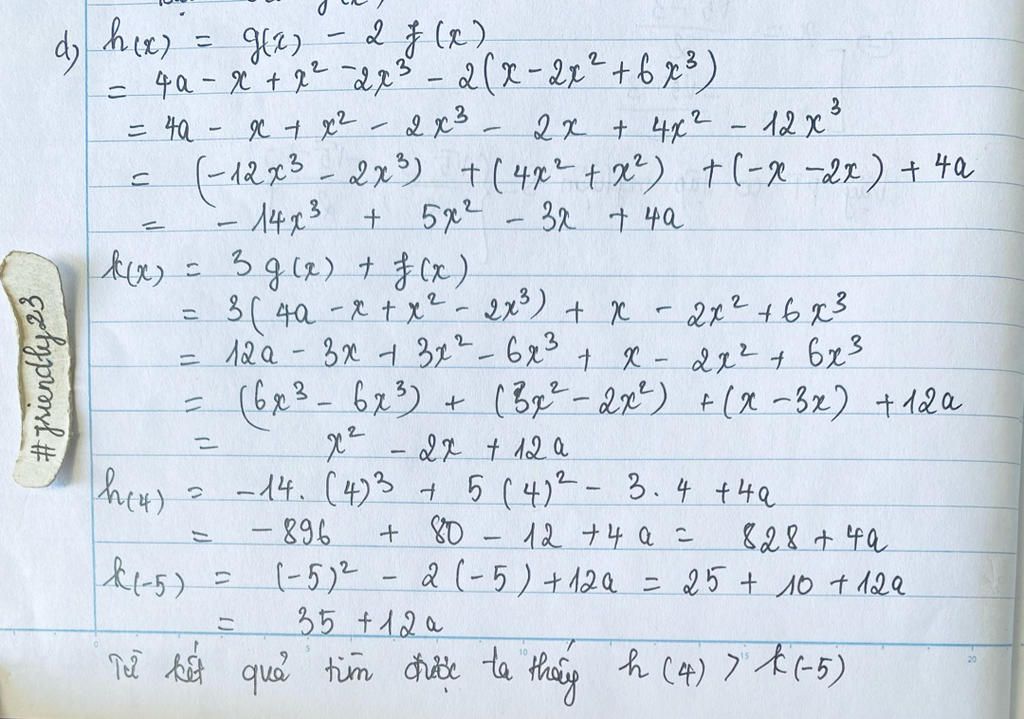 d) h(x) = g(x) - 2 f(x)
= 4a - x + x² - 2x³ - 2(x - 2x² + 6x³)
= 4a - x + x² - 2x³ - 2x + 4x² - 12x³
= (-12x³ - 2x³) + (4x² + x²) + (-x - 2x) + 4a
= -14x³ + 5x² - 3x + 4a
k(x) = 3 g(x) + f(x)
= 3(4a - x + x² - 2x³) + x - 2x² + 6x³
= 12a - 3x + 3x² - 6x³ + x - 2x² + 6x³
= (6x³ - 6x³) + (3x² - 2x²) + (x - 3x) + 12a
= x² - 2x + 12a
h(4) = -14. (4)³ + 5 (4)² - 3. 4 + 4a
= -896 + 80 - 12 + 4a = 828 + 4a
k(-5) = (-5)² - 2(-5) + 12a = 25 + 10 + 12a
= 35 + 12a
Từ kết quả tìm được ta thấy h(4) > k(-5)
#friendly23